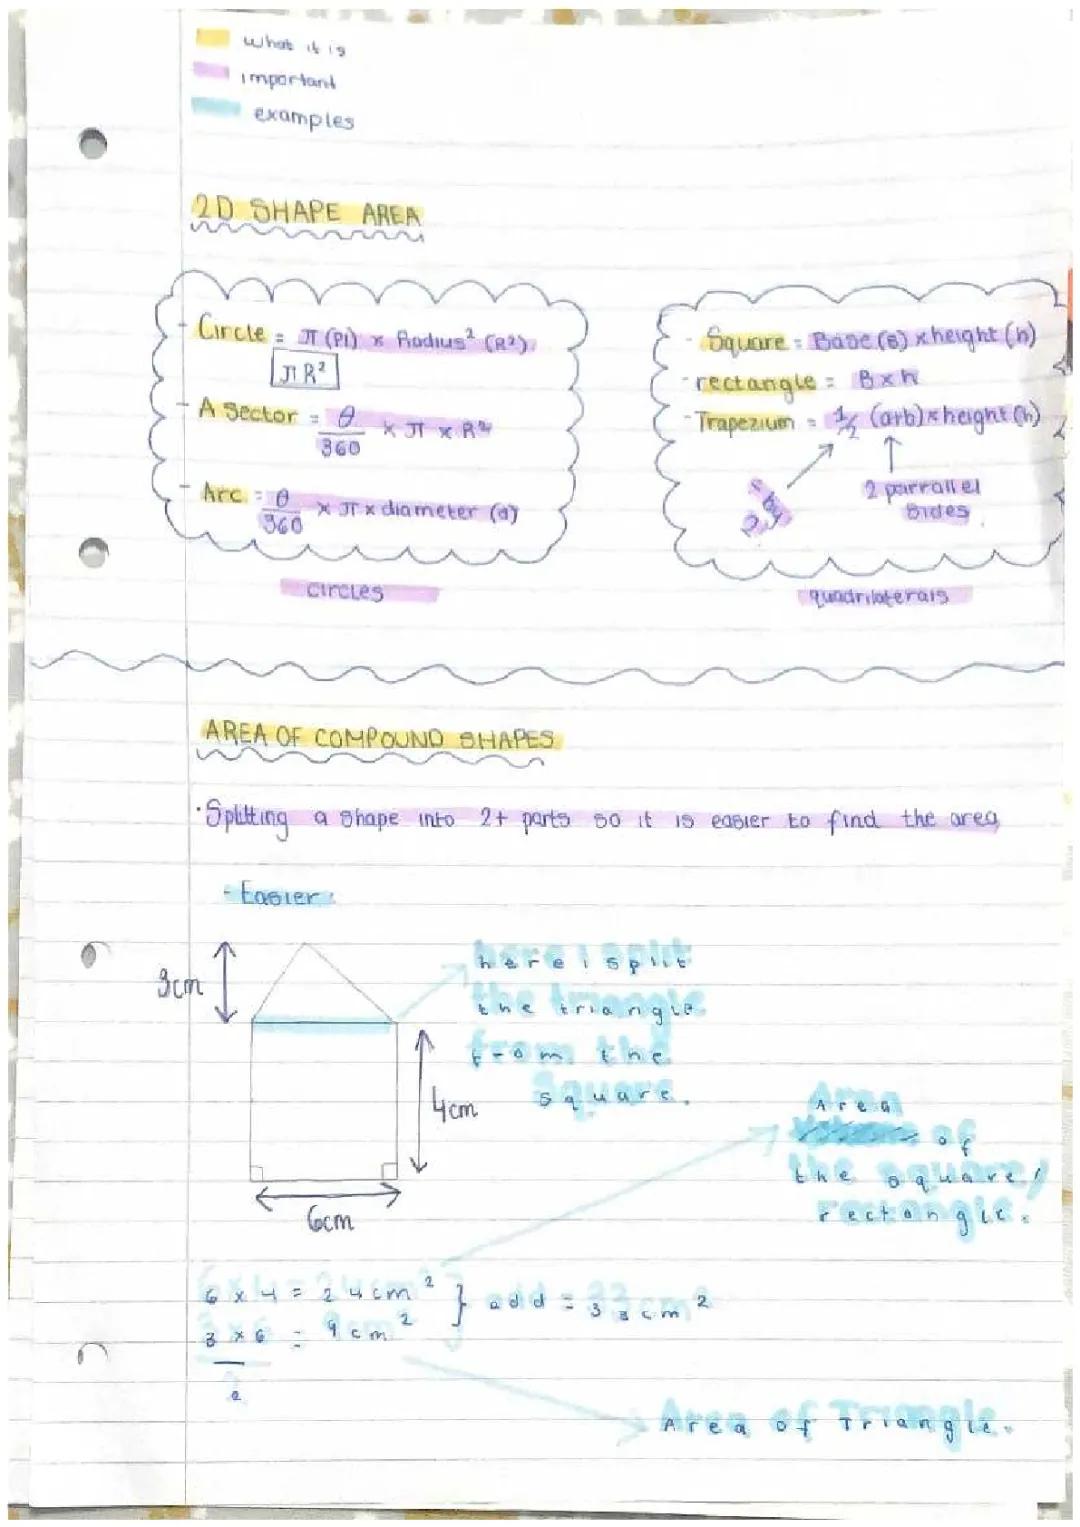 what it is
important
examples
2D SHAPE AREA
Circle = π (Pi) x Radius² (R²).
π R²
A Sector = θ/360 x π x R²
Arc = θ/360 x π x diameter (d)
circles
- Square = Base (B) x height (h)
- rectangle = B x h
- Trapezium = 1/2 (a+b) x height (h)
2 parrallel
sides
quadrilaterals
AREA OF COMPOUND SHAPES
· Splitting a shape into 2+ parts so it is easier to find the area
- Easier:
3cm
here i split
the triangle
from the
square.
4cm
6cm
Area
of
the square/
rectangle.
6 x 4 = 24cm² } add = 33cm²
3 x 6 = 9cm²
2
Area of Triangle.